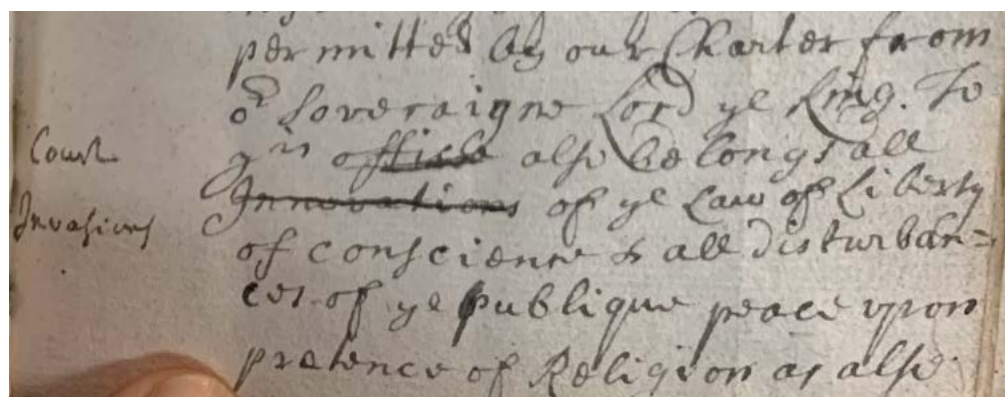 permitted by our Charter from
or Soveraigne Lord ye King. To
Court
ys office also belongs all
Invasions
Innovations of ye Law of Liberty
of conscience & all disturban=
ces of ye publique peace upon
pretence of Religion as also